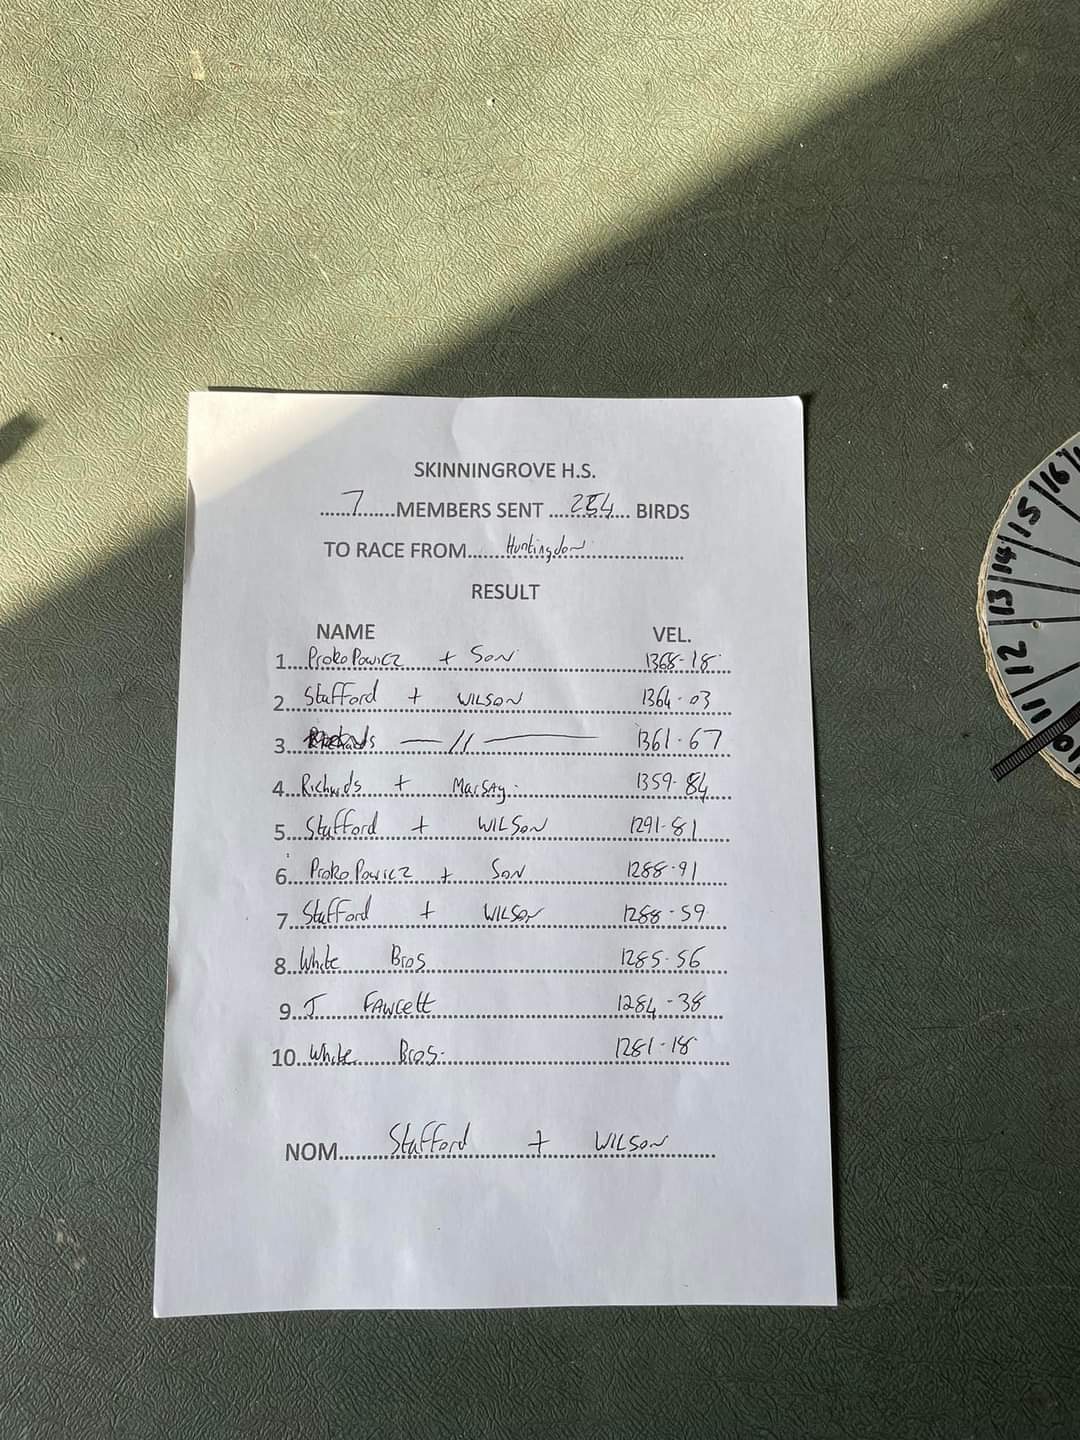 SKINNINGROVE H.S.
7 MEMBERS SENT 254 BIRDS
TO RACE FROM Huntingdon
RESULT
NAME VEL.
1 ProkoPowicz + Son 1368-18
2 Stafford + WILSON 1364-03
3 — 11 — 1361-67
4 Richards + Marsay. 1359-84
5 Stafford + WILSON 1291-81
6 ProkoPowicz + Son 1288-91
7 Stafford + WILSON 1288-59
8 White Bros 1285-56
9 J FAWCett 1284-38
10 White Bros. 1281-18
NOM Stafford + WILSON
16
15
14
13
12
11
10